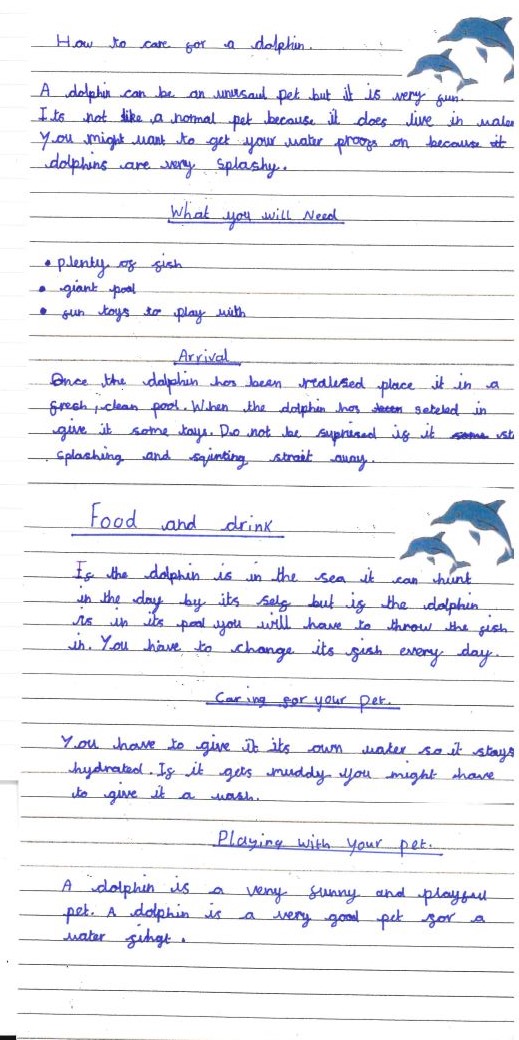 How to care for a dolphin.
A dolphin can be an unusaul pet but it is very fun.
Its not like a normal pet because it does live in water
You might want to get your water proofs on because it
dolphins are very splashy.
What you will Need
• plenty of fish
• giant pool
• fun toys to play with
Arrival
Once the dolphin has been realesed place it in a
fresh, clean pool. When the dolphin has seteled in
give it some toys. Do not be suprised if it st
splashing and squinting strait away.
Food and drink
If the dolphin is in the sea it can hunt
in the day by its self but if the dolphin
is in its pool you will have to throw the fish
in. You have to change its fish every day.
Caring for your pet.
You have to give it its own water so it stays
hydrated. If it gets muddy you might have
to give it a wash.
Playing with your pet.
A dolphin is a very funny and playful
pet. A dolphin is a very good pet for a
water fihgt.